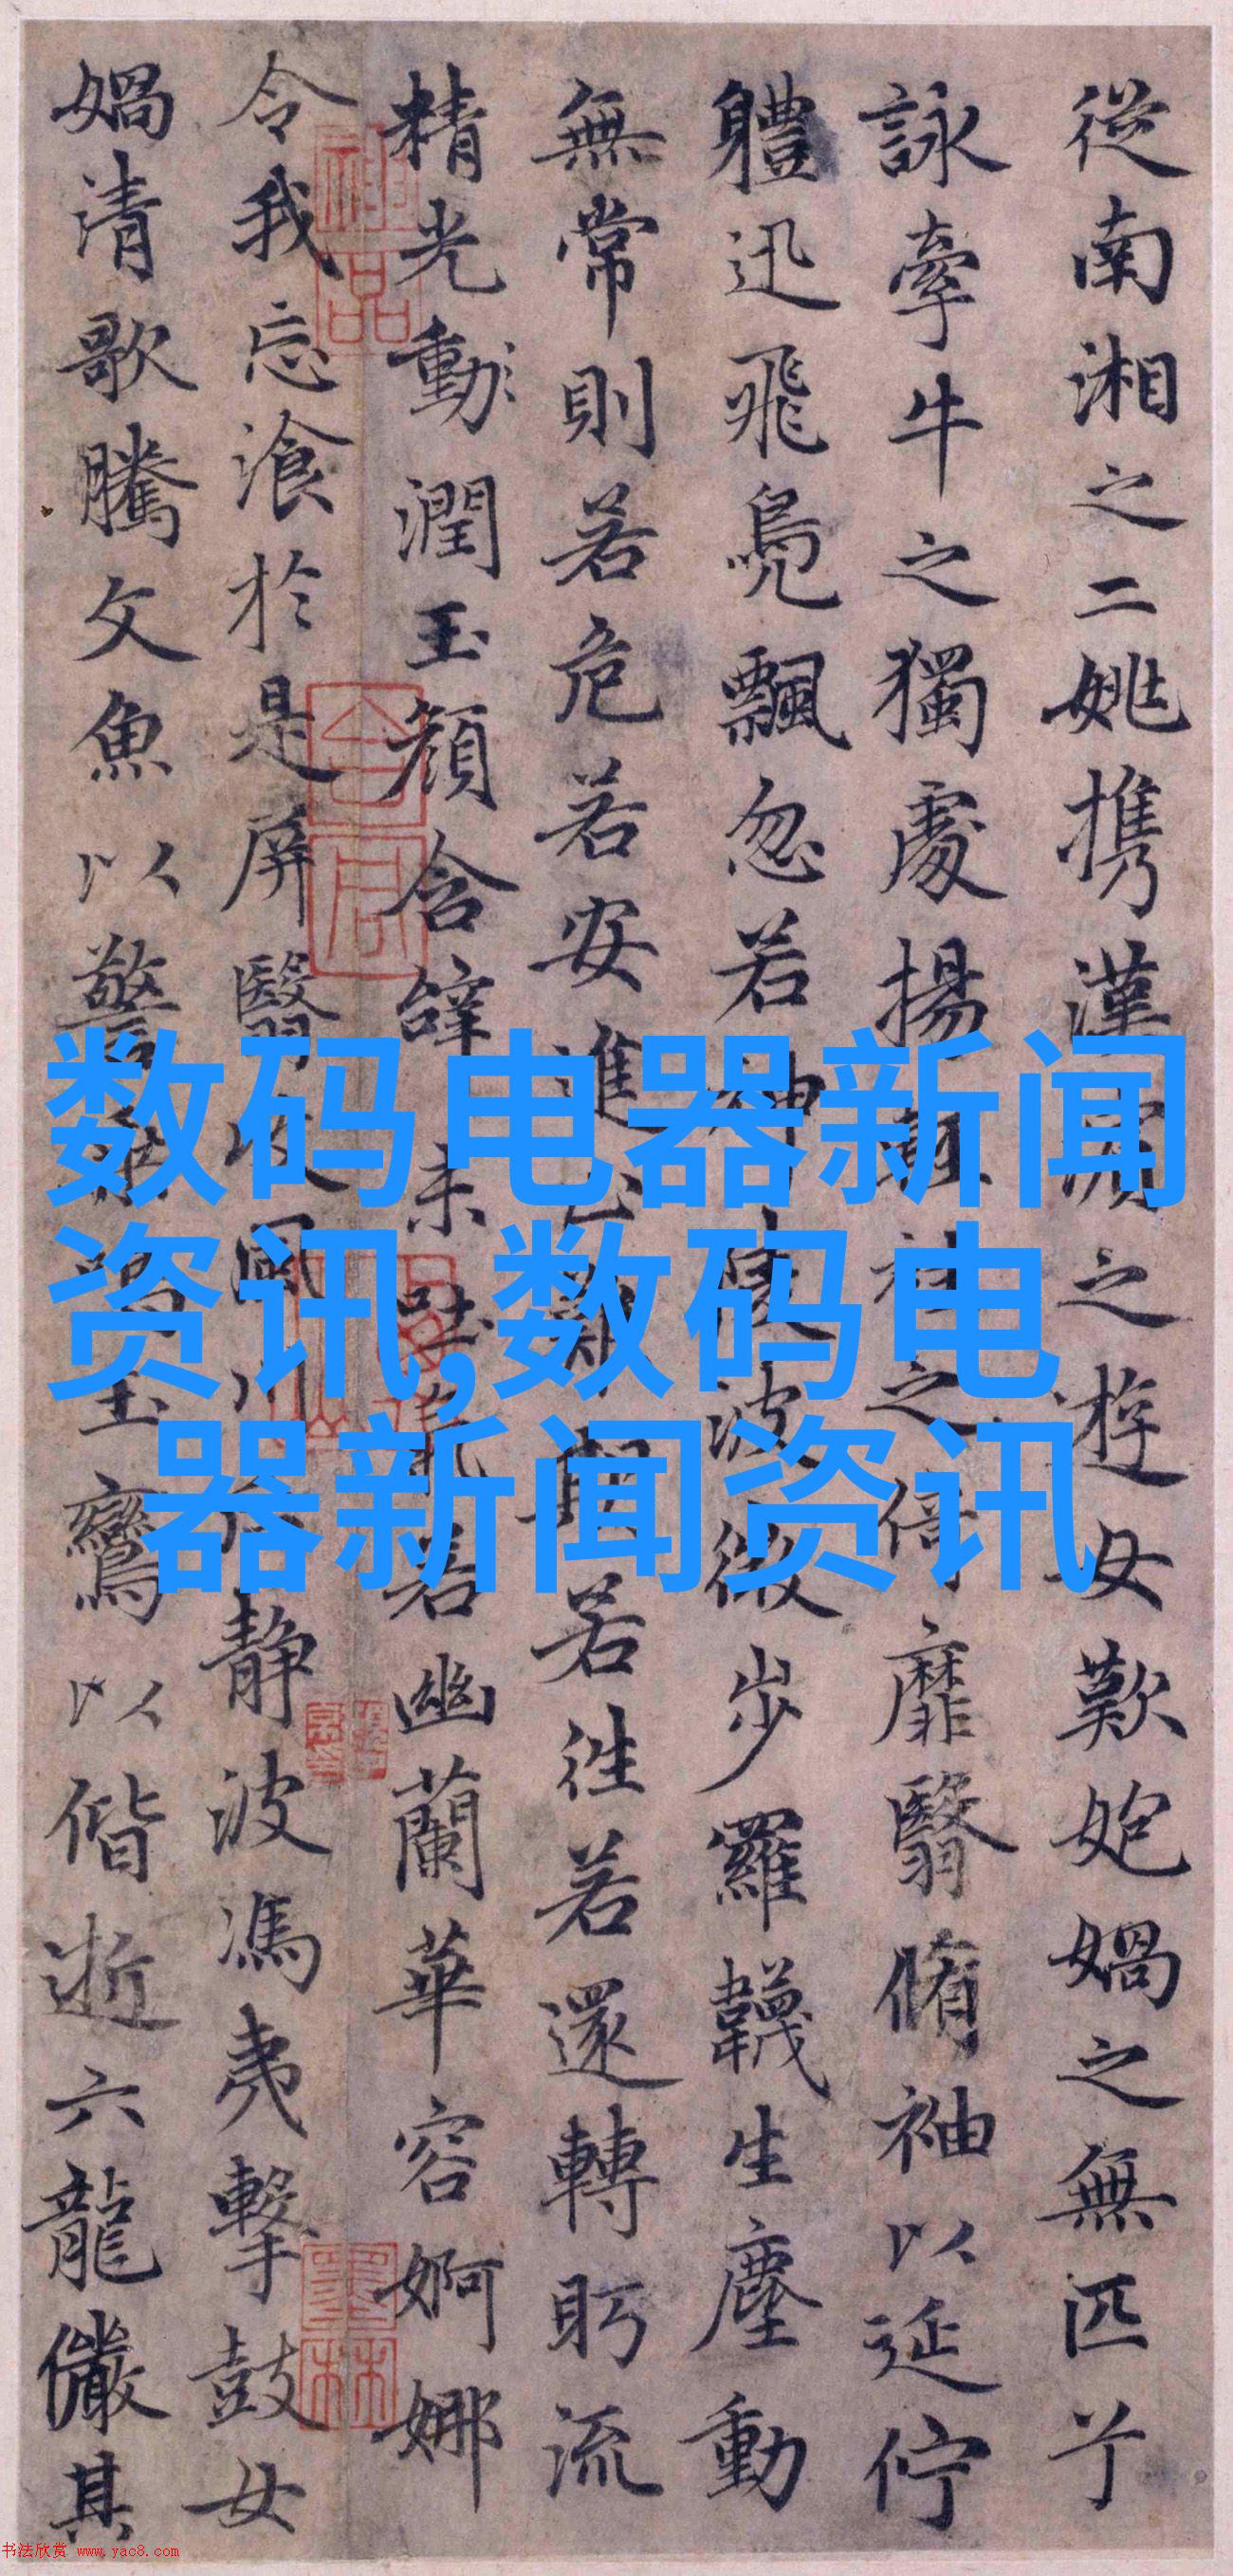 從南湘之二姚攜漢濱之遊女歎匏媧之無匹兮
詠牽牛之獨處揚輕袿之倚靡翳脩袖以延佇
體迅飛鳧飄忽若神陵波微步羅韈生塵動
無常則若危若安進止難期若往若還轉眄流
精光動潤玉顏含辭未吐氣若幽蘭華容婀娜
令我忘飡於是屏翳收風川后靜波馮夷擊鼓女
媧清歌騰文魚以警乘鳴玉鸞以偕逝六龍儼其
数码电器新闻
资讯,数码电
器新闻资讯
书法欣赏 www.yac8.com